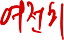 여전히